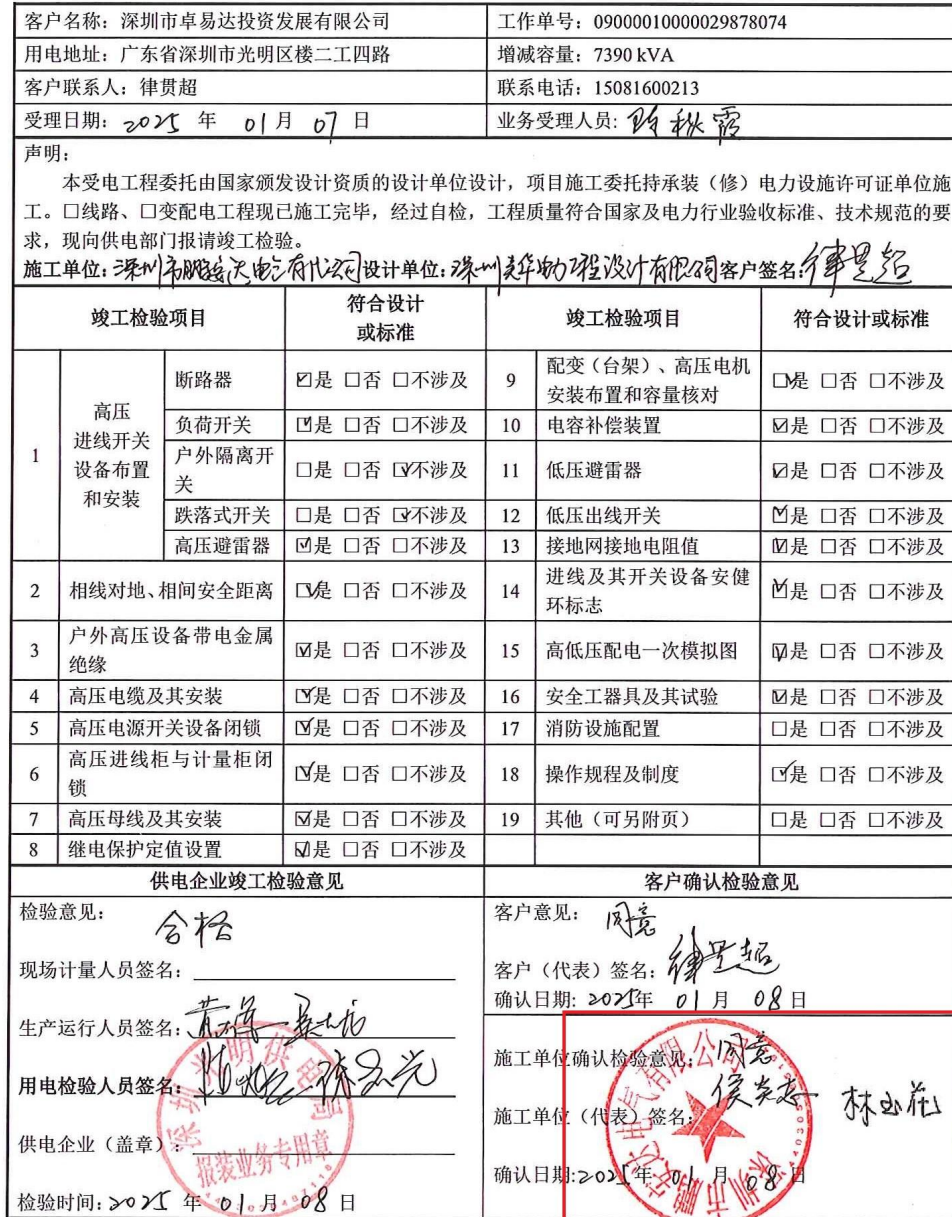 客户名称：深圳市卓易达投资发展有限公司 工作单号：09000010000029878074
用电地址：广东省深圳市光明区楼二工四路 增减容量：7390 kVA
客户联系人：律贯超 联系电话：15081600213
受理日期：2025 年 01 月 07 日 业务受理人员：
声明：
本受电工程委托由国家颁发设计资质的设计单位设计，项目施工委托持承装（修）电力设施许可证单位施
工。□线路、□变配电工程现已施工完毕，经过自检，工程质量符合国家及电力行业验收标准、技术规范的要
求，现向供电部门报请竣工检验。
施工单位：深圳市鹏安达电气有限公司 设计单位：深圳 设计有限公司 客户签名：律贯超
竣工检验项目 符合设计或标准 竣工检验项目 符合设计或标准
1 高压进线开关设备布置和安装 断路器 ☑是 □否 □不涉及 9 配变（台架）、高压电机安装布置和容量核对 ☑是 □否 □不涉及
负荷开关 ☑是 □否 □不涉及 10 电容补偿装置 ☑是 □否 □不涉及
户外隔离开关 □是 □否 ☑不涉及 11 低压避雷器 ☑是 □否 □不涉及
跌落式开关 □是 □否 ☑不涉及 12 低压出线开关 ☑是 □否 □不涉及
高压避雷器 ☑是 □否 □不涉及 13 接地网接地电阻值 ☑是 □否 □不涉及
2 相线对地、相间安全距离 ☑是 □否 □不涉及 14 进线及其开关设备安健环标志 ☑是 □否 □不涉及
3 户外高压设备带电金属绝缘 ☑是 □否 □不涉及 15 高低压配电一次模拟图 ☑是 □否 □不涉及
4 高压电缆及其安装 ☑是 □否 □不涉及 16 安全工器具及其试验 ☑是 □否 □不涉及
5 高压电源开关设备闭锁 ☑是 □否 □不涉及 17 消防设施配置 □是 □否 □不涉及
6 高压进线柜与计量柜闭锁 ☑是 □否 □不涉及 18 操作规程及制度 ☑是 □否 □不涉及
7 高压母线及其安装 ☑是 □否 □不涉及 19 其他（可另附页） □是 □否 □不涉及
8 继电保护定值设置 ☑是 □否 □不涉及
供电企业竣工检验意见 客户确认检验意见
检验意见：合格
现场计量人员签名：
生产运行人员签名：
用电检验人员签名：
供电企业（盖章）：
检验时间：2025 年 01 月 08 日
深圳光明供电局
报装业务专用章
客户意见：同意
客户（代表）签名：律贯超
确认日期：2025年 01 月 08 日
施工单位确认检验意见：同意
施工单位（代表）签名：
确认日期：2025年 01 月 08 日
深圳市鹏安达电气有限公司